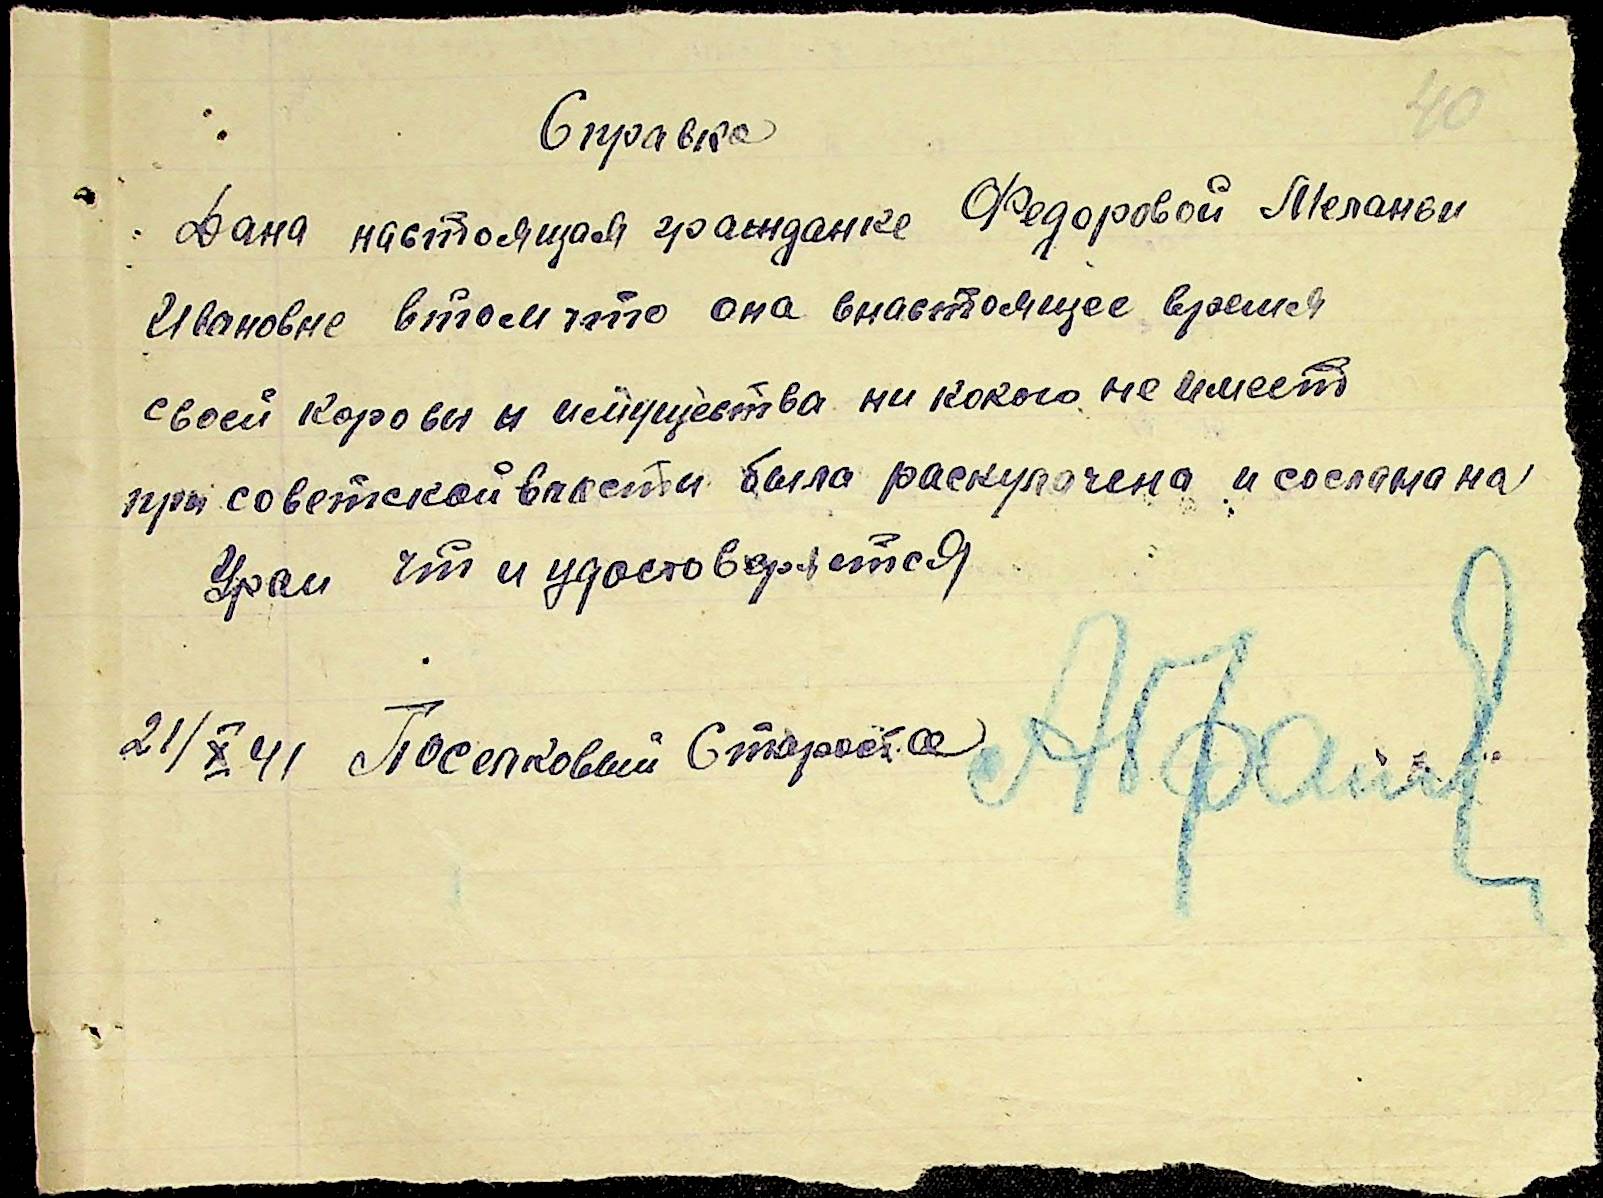 40
Справка
Дана настоящая гражданке Федоровой Меланьи
Ивановне втом что она внастоящее время
своей коровы и имущества ни кокого не имеет
при советской власти была раскулачена и сослана на
Урал что и удостоверяется
21/X 41 Поселковый Староста